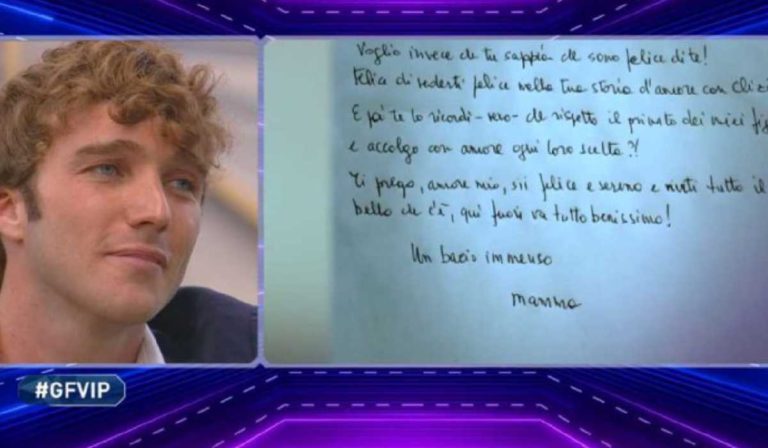 Voglio invece che tu sappia che sono felice di te!
Felice di vederti felice nella tua storia d'amore con Clizi
E poi te lo ricordi-vero-che rispetto il privato dei miei fig
e accolgo con amore ogni loro scelta?!
Ti prego, amore mio, sii felice e sereno e tutto il
bello che c'è, qui fuori va tutto benissimo!
Un bacio immenso
mamma
#GFVIP